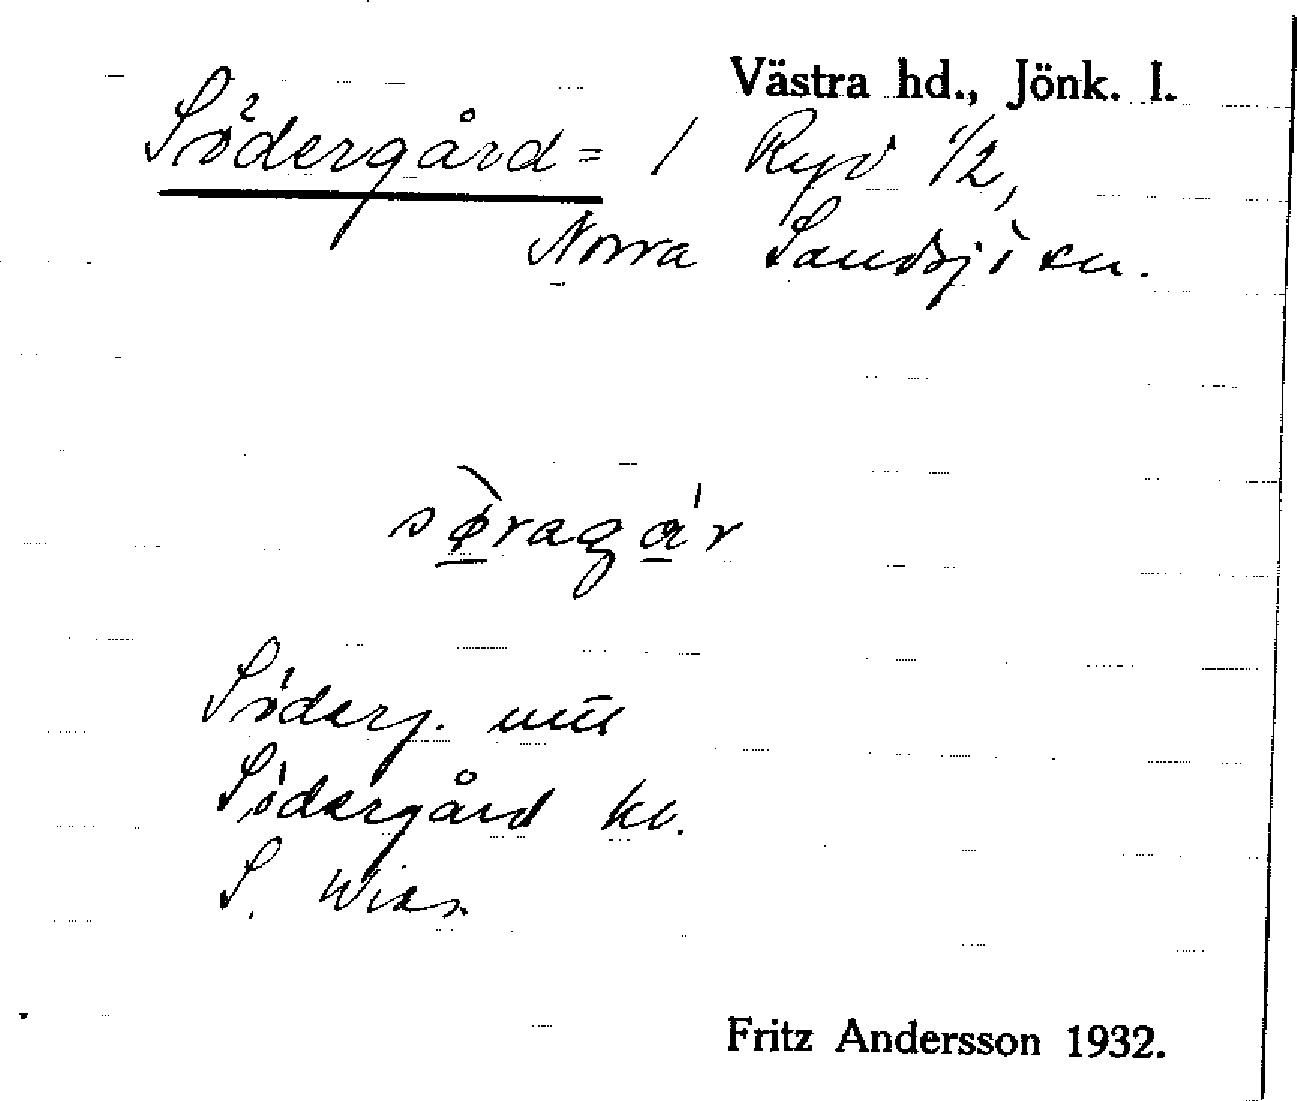 Västra hd., Jönk. l.
Södergård = 1 Ryd 1/2,
Norra Sandsjö sn.
sø̀ragá̱r
Söderg.
Södergård
S.
Fritz Andersson 1932.